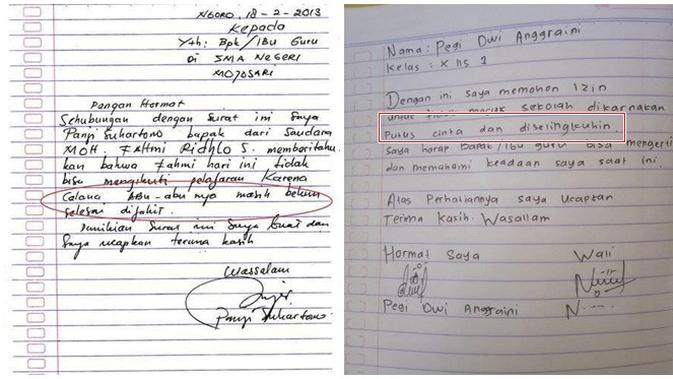 NGORO, 18-2-2013
Kepada
Yth: Bpk/Ibu Guru
Di SMA NEGERI
MOJOSARI
Dengan Hormat
Sehubungan dengan surat ini Saya
Panji Suhartono bapak dari Saudara
MOH. FAHMI Ridhlo S. memberitahu
kan bahwa Fahmi hari ini tidak
bisa mengikuti pelajaran Karena
Celana ABu-abu nya masih belum
selesai dijahit.
Demikian Surat ini Saya buat dan
Saya ucapkan terima kasih
Wassalam
Panji Suhartono
Nama: Pegi Dwi Anggraini
Kelas: X IIS 2
Dengan ini saya memohon Izin
untuk tidak masuk sekolah dikarnakan
Putus cinta dan diselingkuhin.
saya harap Bapak/Ibu guru bisa mengerti
dan memahami keadaan saya saat ini.
Atas Perhatiannya saya Ucapkan
Terima kasih. Wasallam
Hormat Saya Wali
Pegi Dwi Anggraini N.....